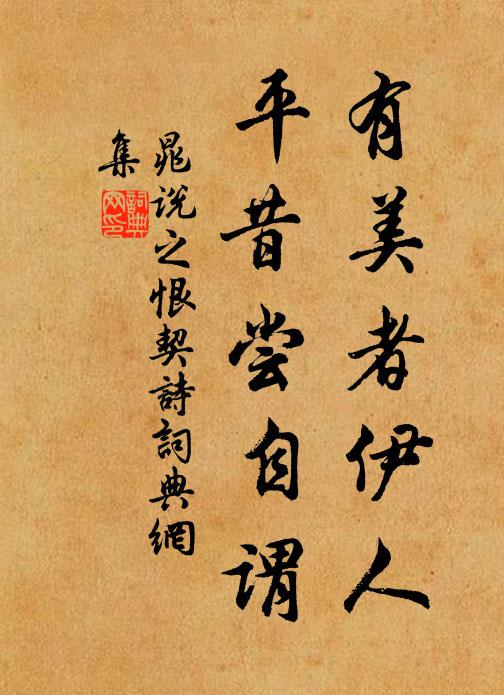 有美者伊人
平昔尝自谓
晁说之恨契詩詞典網
集
詞典网印